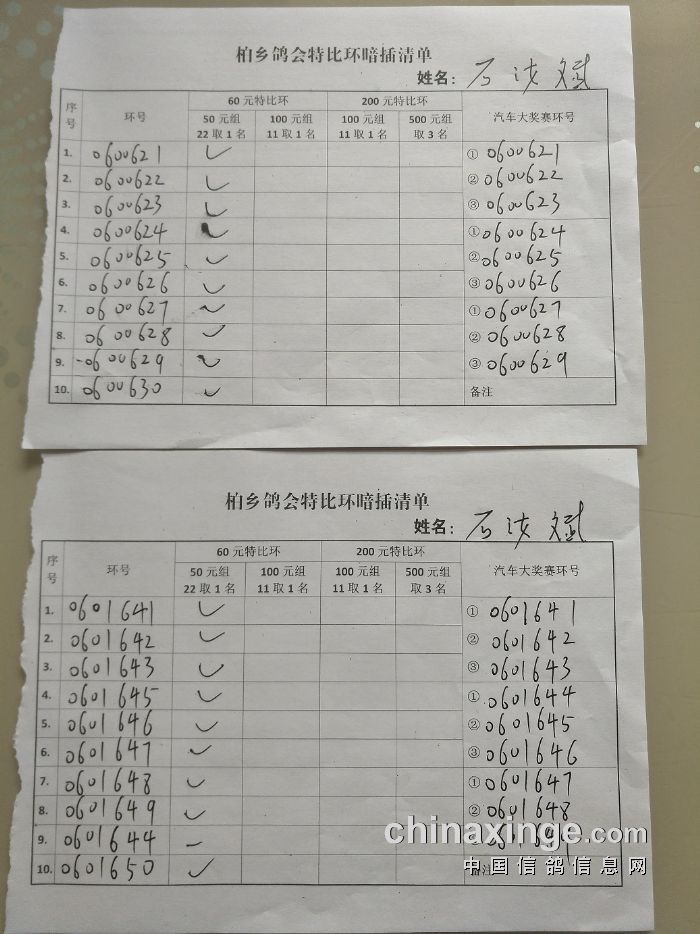 柏乡鸽会特比环暗插清单
姓名：石汝斌
序号 环号 60 元特比环 200 元特比环 汽车大奖赛环号
50 元组 22 取 1 名 100 元组 11 取 1 名 100 元组 11 取 1 名 500 元组 取 3 名
1. 0600621 ✓ ① 0600621
2. 0600622 ✓ ② 0600622
3. 0600623 ✓ ③ 0600623
4. 0600624 ✓ ① 0600624
5. 0600625 ✓ ② 0600625
6. 0600626 ✓ ③ 0600626
7. 0600627 ✓ ① 0600627
8. 0600628 ✓ ② 0600628
9. 0600629 ✓ ③ 0600629
10. 0600630 ✓ 备注
柏乡鸽会特比环暗插清单
姓名：石汝斌
序号 环号 60 元特比环 200 元特比环 汽车大奖赛环号
50 元组 22 取 1 名 100 元组 11 取 1 名 100 元组 11 取 1 名 500 元组 取 3 名
1. 0601641 ✓ ① 0601641
2. 0601642 ✓ ② 0601642
3. 0601643 ✓ ③ 0601643
4. 0601645 ✓ ① 0601644
5. 0601646 ✓ ② 0601645
6. 0601647 ✓ ③ 0601646
7. 0601648 ✓ ① 0601647
8. 0601649 ✓ ② 0601648
9. 0601644 ✓
10. 0601650 ✓ 备注
chinaxinge.com
中国信鸽信息网